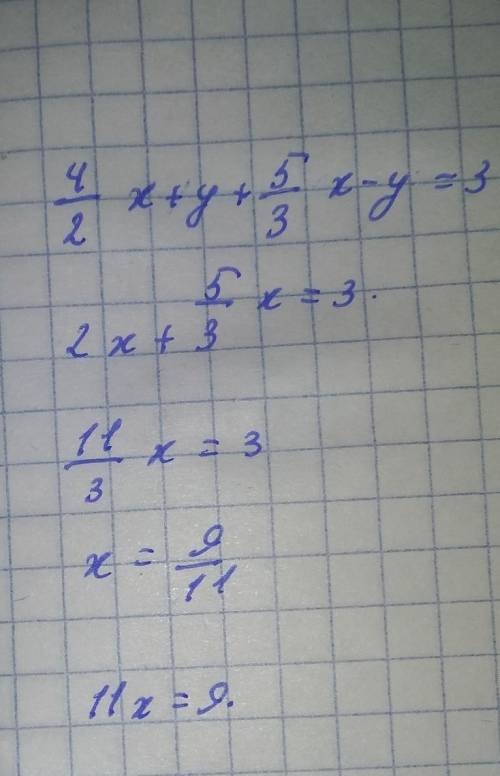 4/2 x + y + 5/3 x - y = 3
2x + 5/3 x = 3.
11/3 x = 3
x = 9/11
11x = 9.